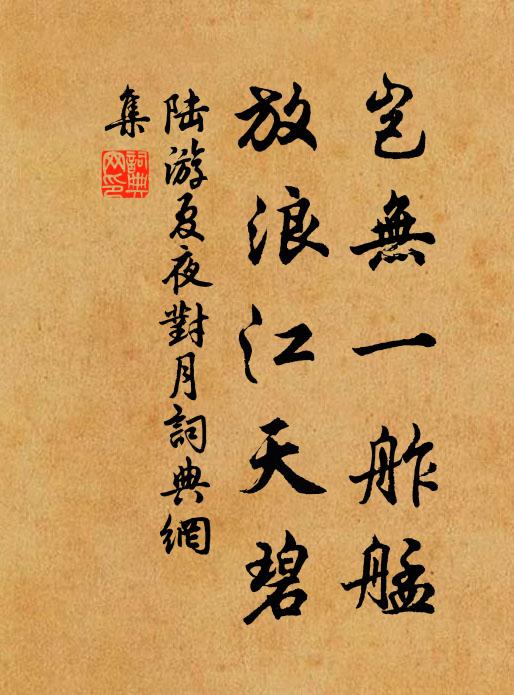 豈無一舴艋
放浪江天碧
陸游夏夜對月詞典網
集
詞典網印